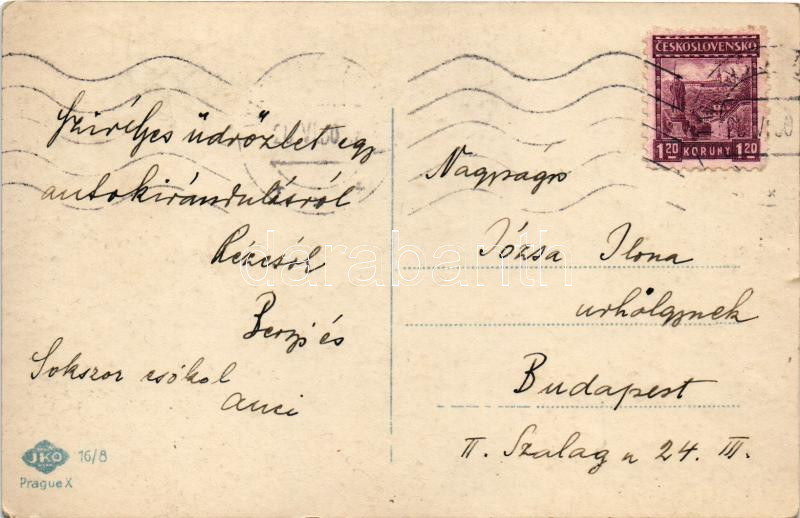 Szivélyes üdvözlet egy
autokirándulásról
Berzi és
Sokszor csókol
Anci
JKO
16/8
Prague X
ČESKOSLOVENSKO
1.20 KORUNY 1.20
Nagyságos
Józsa Ilona
urhölgynek
Budapest
II. Szalag u 24. III.
darabanth